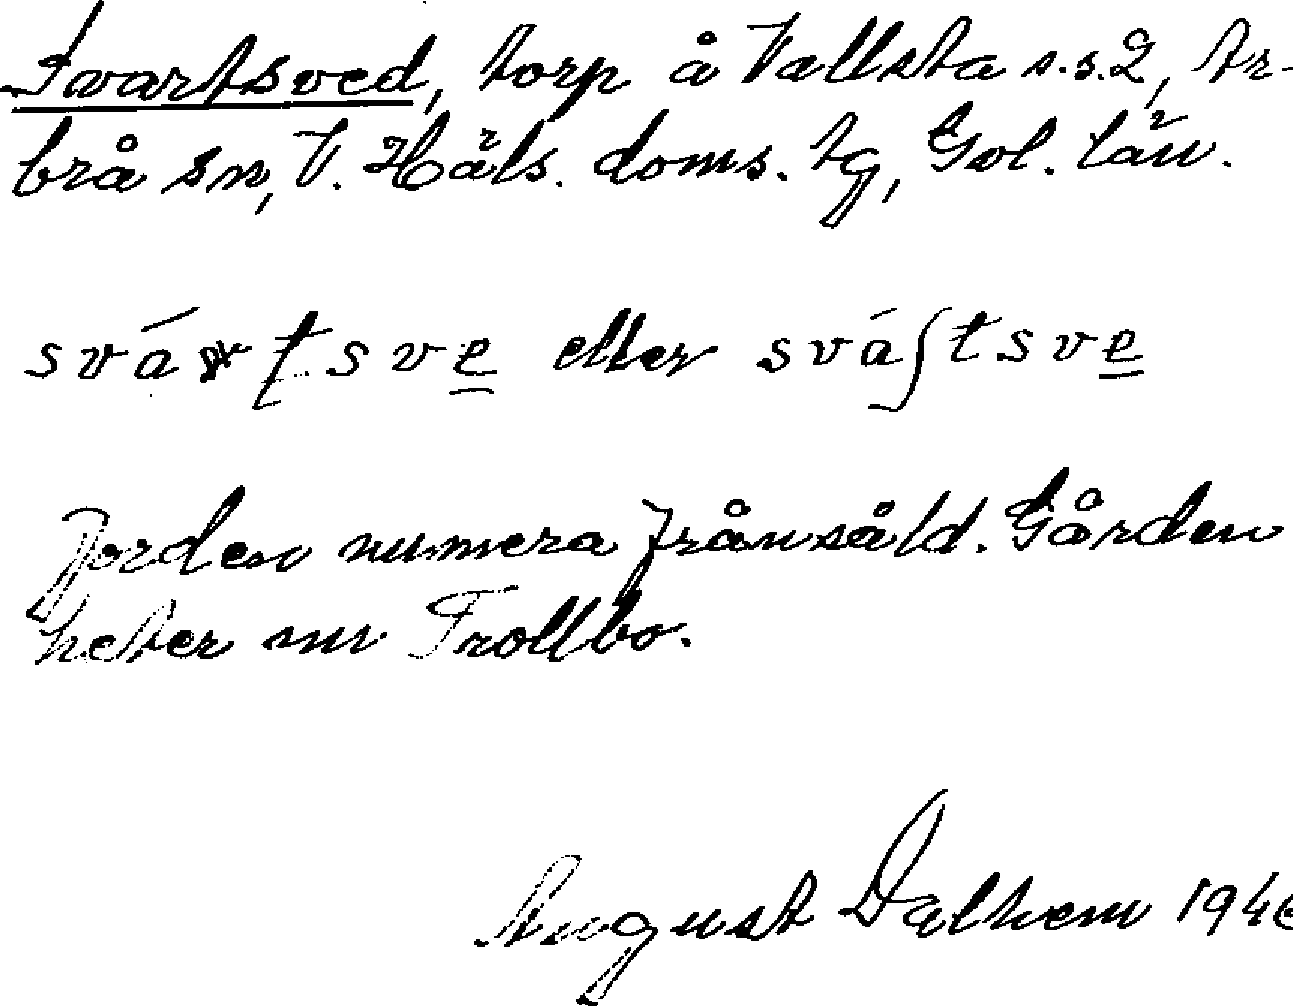 Svartsved, torp å Vallsta s.s. 2, Ar-
brå sn, V. Häls. doms. tg, Gvl. län.
svá eller sváʃtsve
Jorden numera frånsåld. Gården
heter nu Trollbo.
August Dalhem